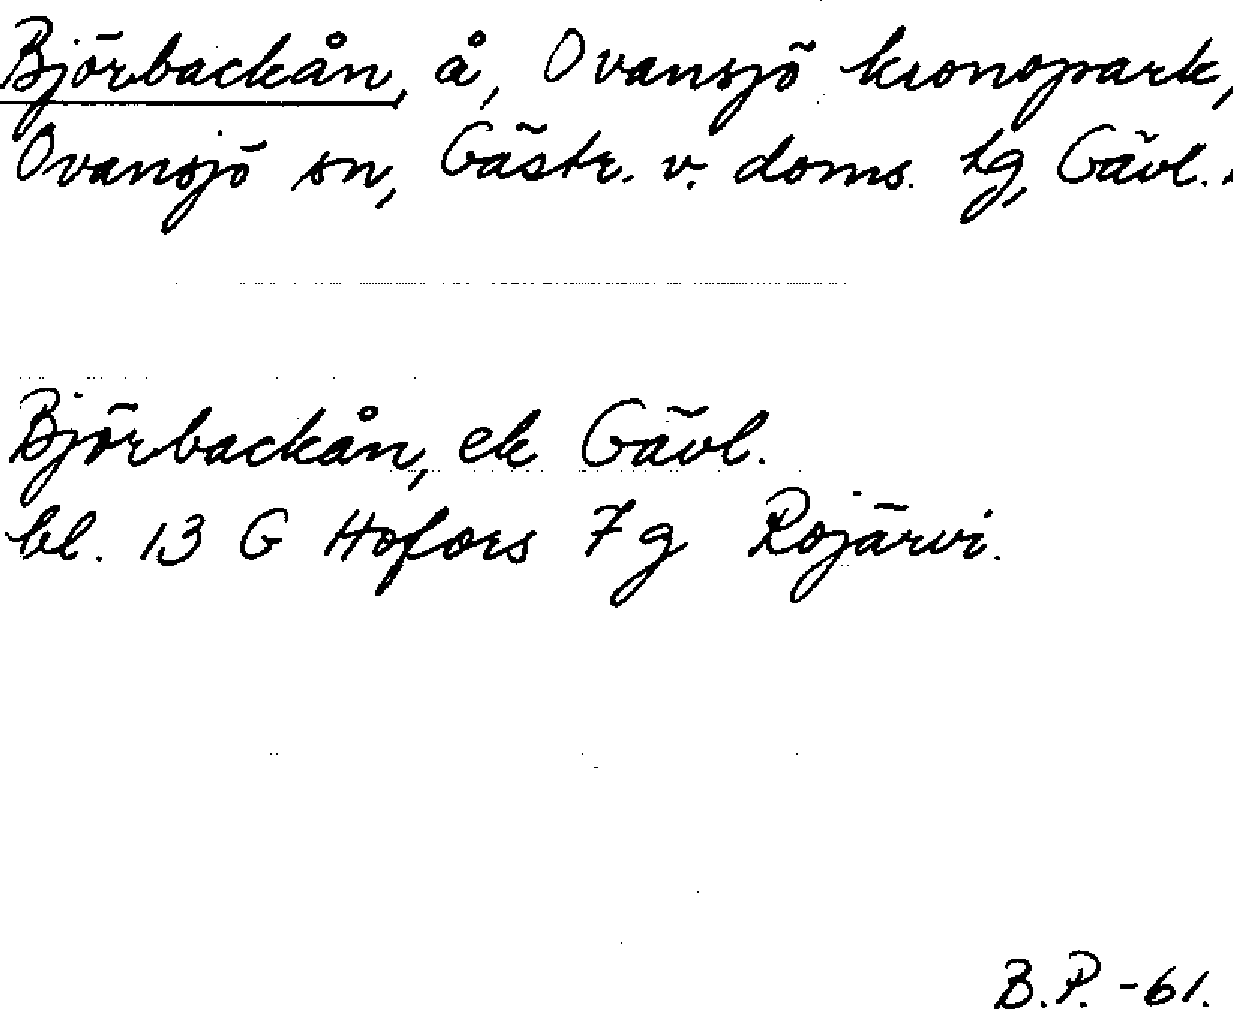 Björbackån, å, Ovansjö kronopark,
Ovansjö sn, Gästr. v. doms. tg, Gävl..
Björbackån, ek Gävl.
bl. 13 G Hofors 7 g Rojärvi.
B.P. -61.